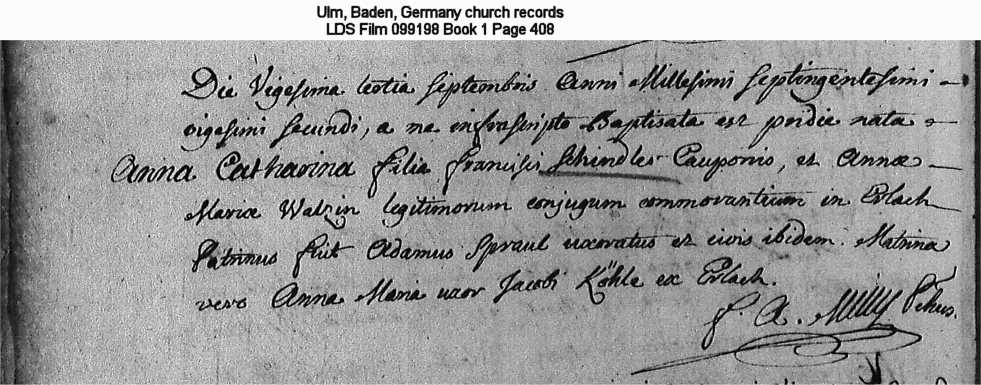 Ulm, Baden, Germany church records
LDS Film 099198 Book 1 Page 408
Die Vigesima tertia Septembris Anni Millesimi Septingentesimi
vigesimi secundi, a me infrascripto Baptisata est pridie nata
Anna Catharina filia Francisci Schindler Cauponis, et Annæ
Mariæ Walzin legitimorum conjugum commorantium in Erlach
Patrinus fuit Adamus Spraul uxoratus et civis ibidem. Matrina
vero Anna Maria uxor Jacobi Köhle ex Erlach.
f. A.